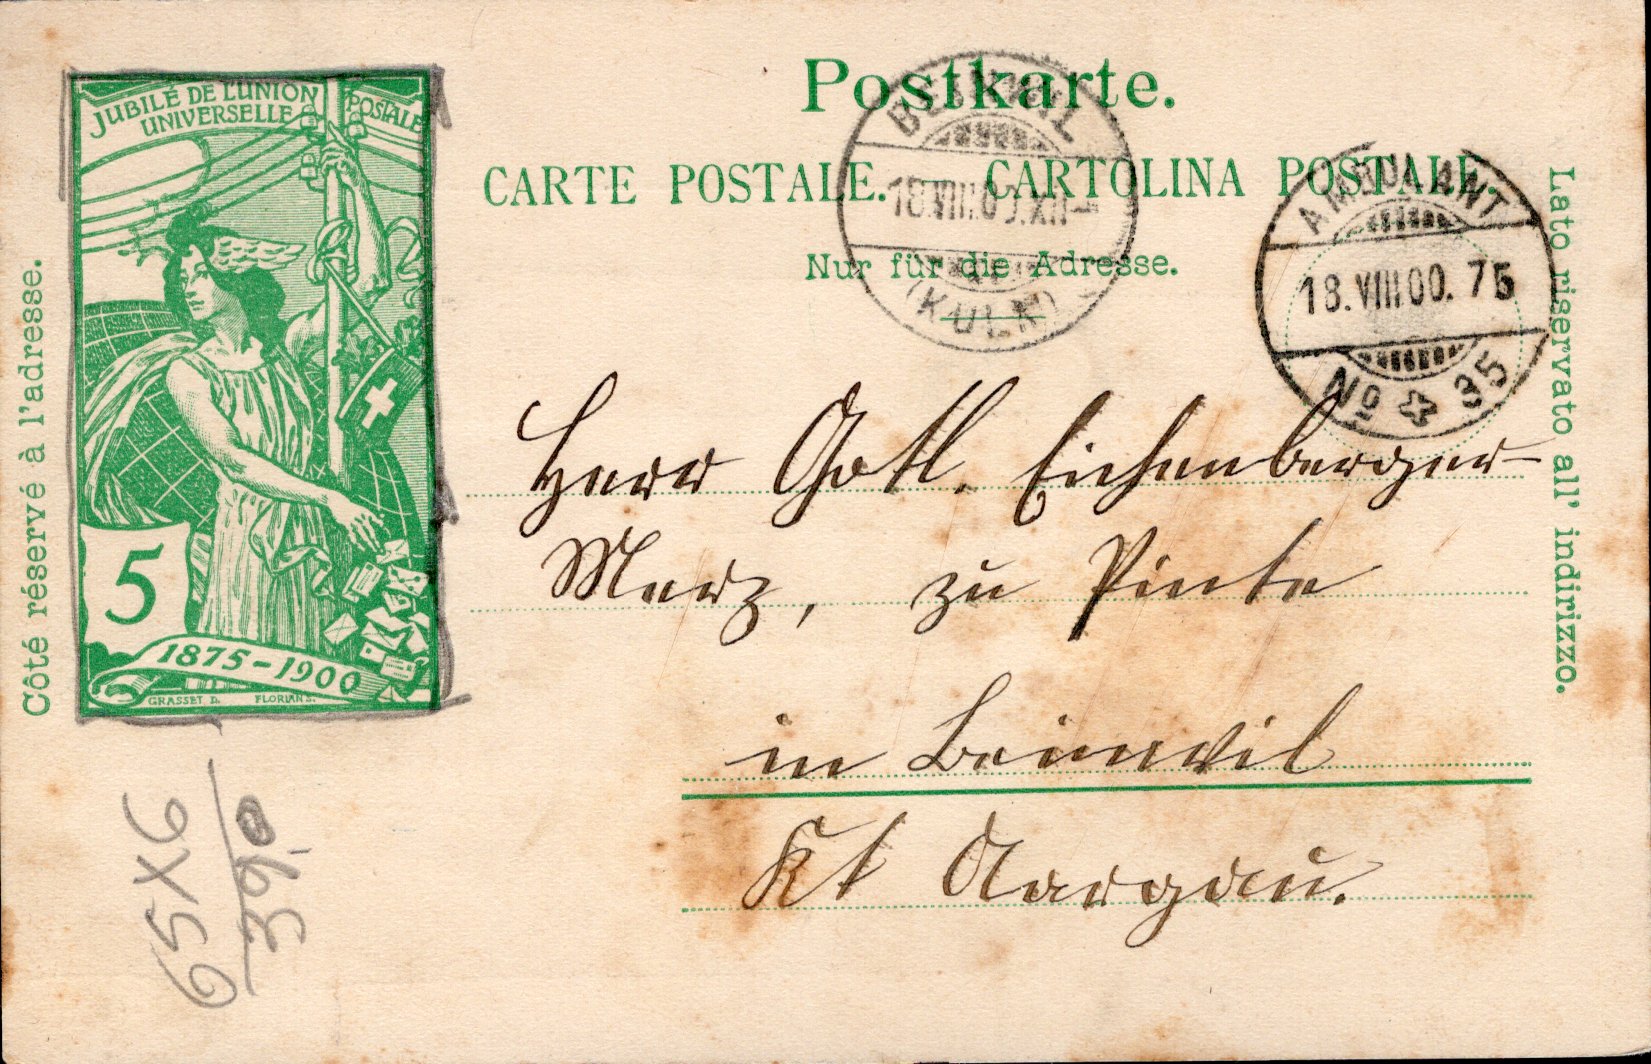 JUBILÉ DE L'UNION POSTALE
UNIVERSELLE
5
1875-1900
GRASSET. D. FLORIAN S.
Postkarte.
CARTE POSTALE. CARTOLINA POSTALE.
Nur für die Adresse.
Côté réservé à l'adresse.
Lato riservato all' indirizzo.
BEINWIL
18.VIII.00.XII-
(KULM)
AMBULANT
18.VIII.00. 75
No 35
Herr Gotl. Eichenberger-
Merz, zu Pinte
in Beinwil
Kt Aargau.
65X6
390